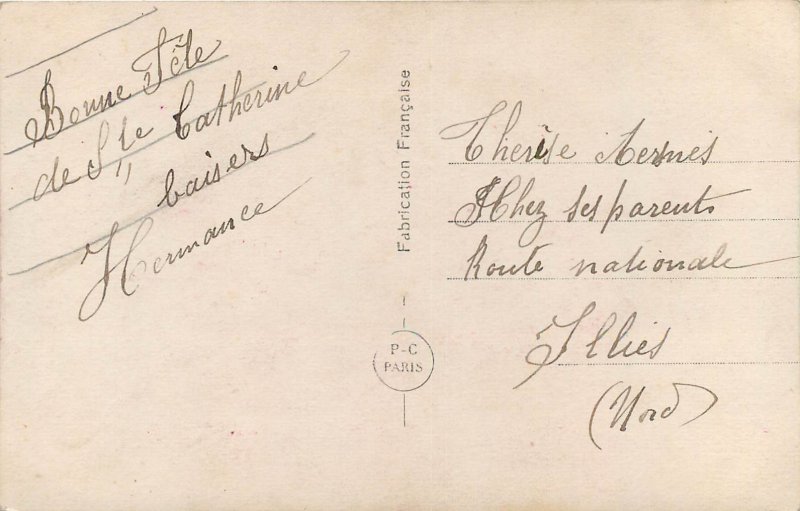 Bonne Fête
de Ste Catherine
baisers
Hermance
Fabrication Française
P-C
PARIS
Thérèse
Chez ses parents
Route nationale
Illies
(Nord)